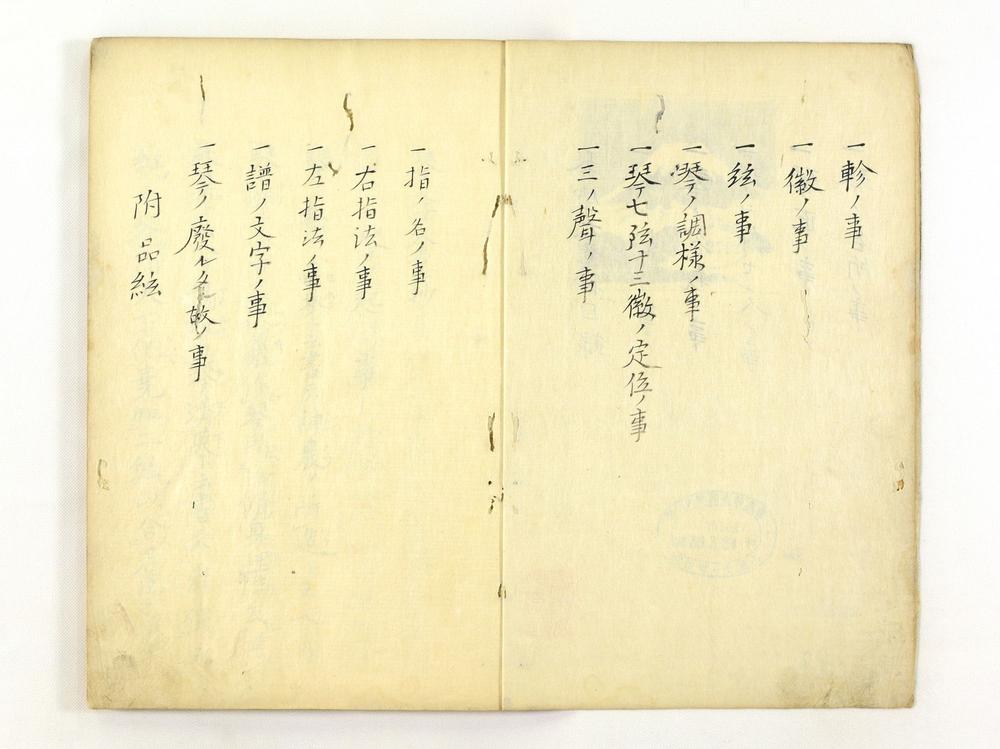 一軫ノ事
一徽ノ事
一絃ノ事
一琴ノ調様ノ事
一琴ノ七弦十三徽ノ定位ノ事
一三ノ聲ノ事
一指ノ名ノ事
一右指法ノ事
一左指法ノ事
一譜ノ文字ノ事
一琴ノ廢ルヽ故ノ事
附品絃